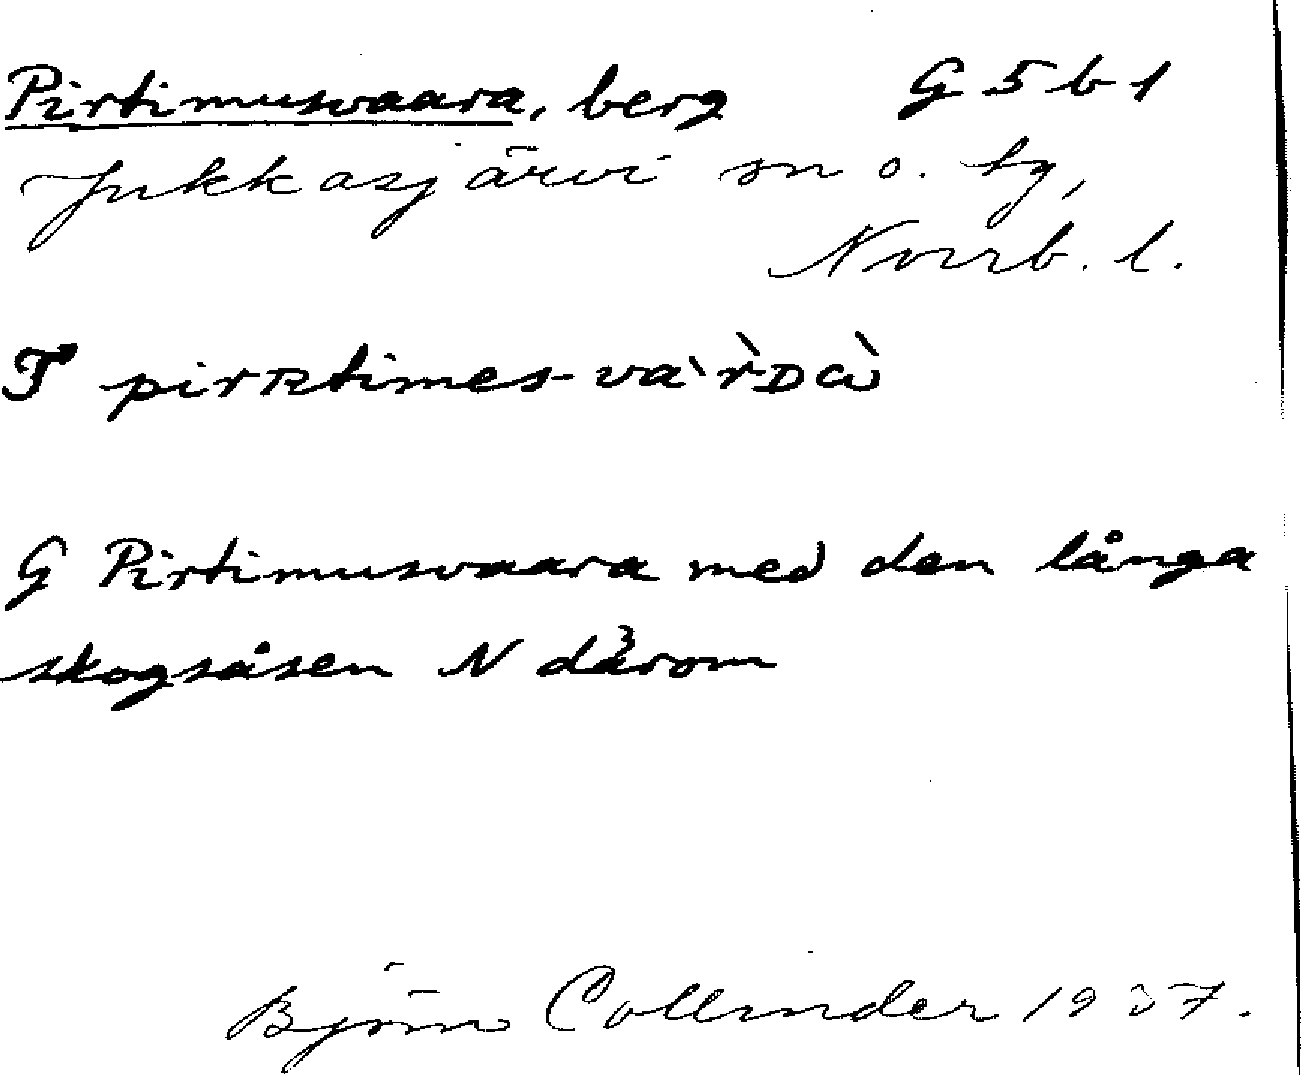 Pirtimusvaara, berg G 5 b 1
Jukkasjärvi sn o. tg,
Norrb. l.
T pirʀtimes-va`r̀ᴅὰ
G Pirtimusvaara med den långa
skogsåsen N därom
Björn Collinder 1937.